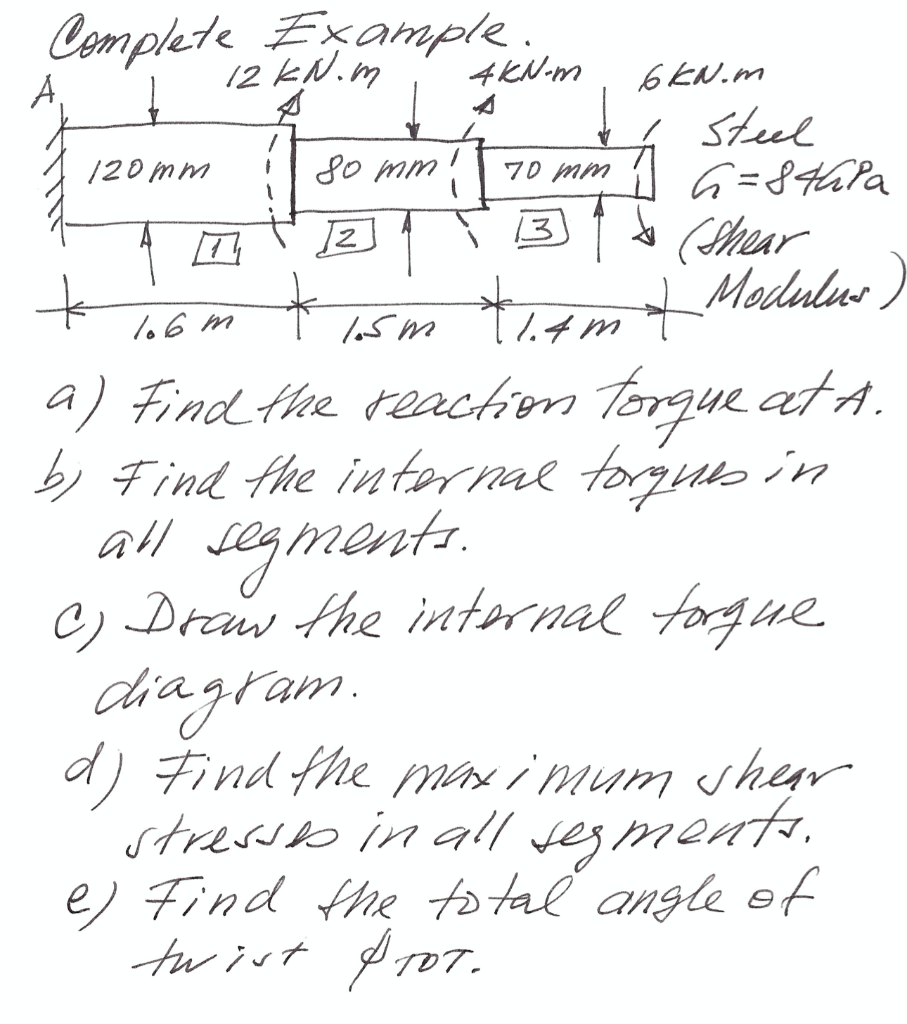 Complete Example.
A 12 kN.m 4 kN-m 6 kN.m
Steel
120 mm 80 mm 70 mm G = 84 GPa
1 2 3 (Shear
Modulus)
1.6 m 1.5 m 1.4 m
a) Find the reaction torque at A.
b) Find the internal torques in
all segments.
c) Draw the internal torque
diagram.
d) Find the maximum shear
stresses in all segments.
e) Find the total angle of
twist ϕ TOT.